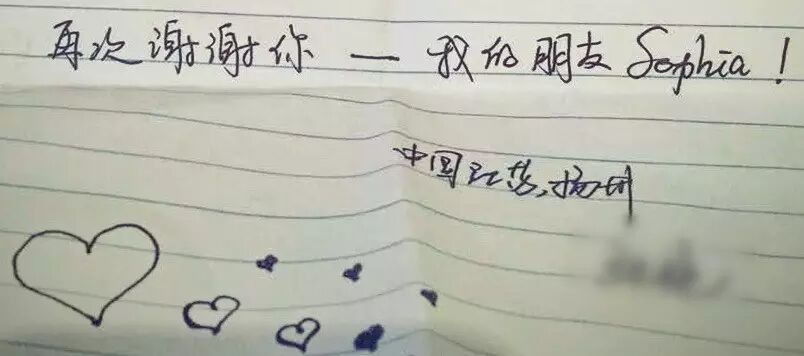 再次谢谢你 — 我的朋友 Sophia！
中国江苏,扬州